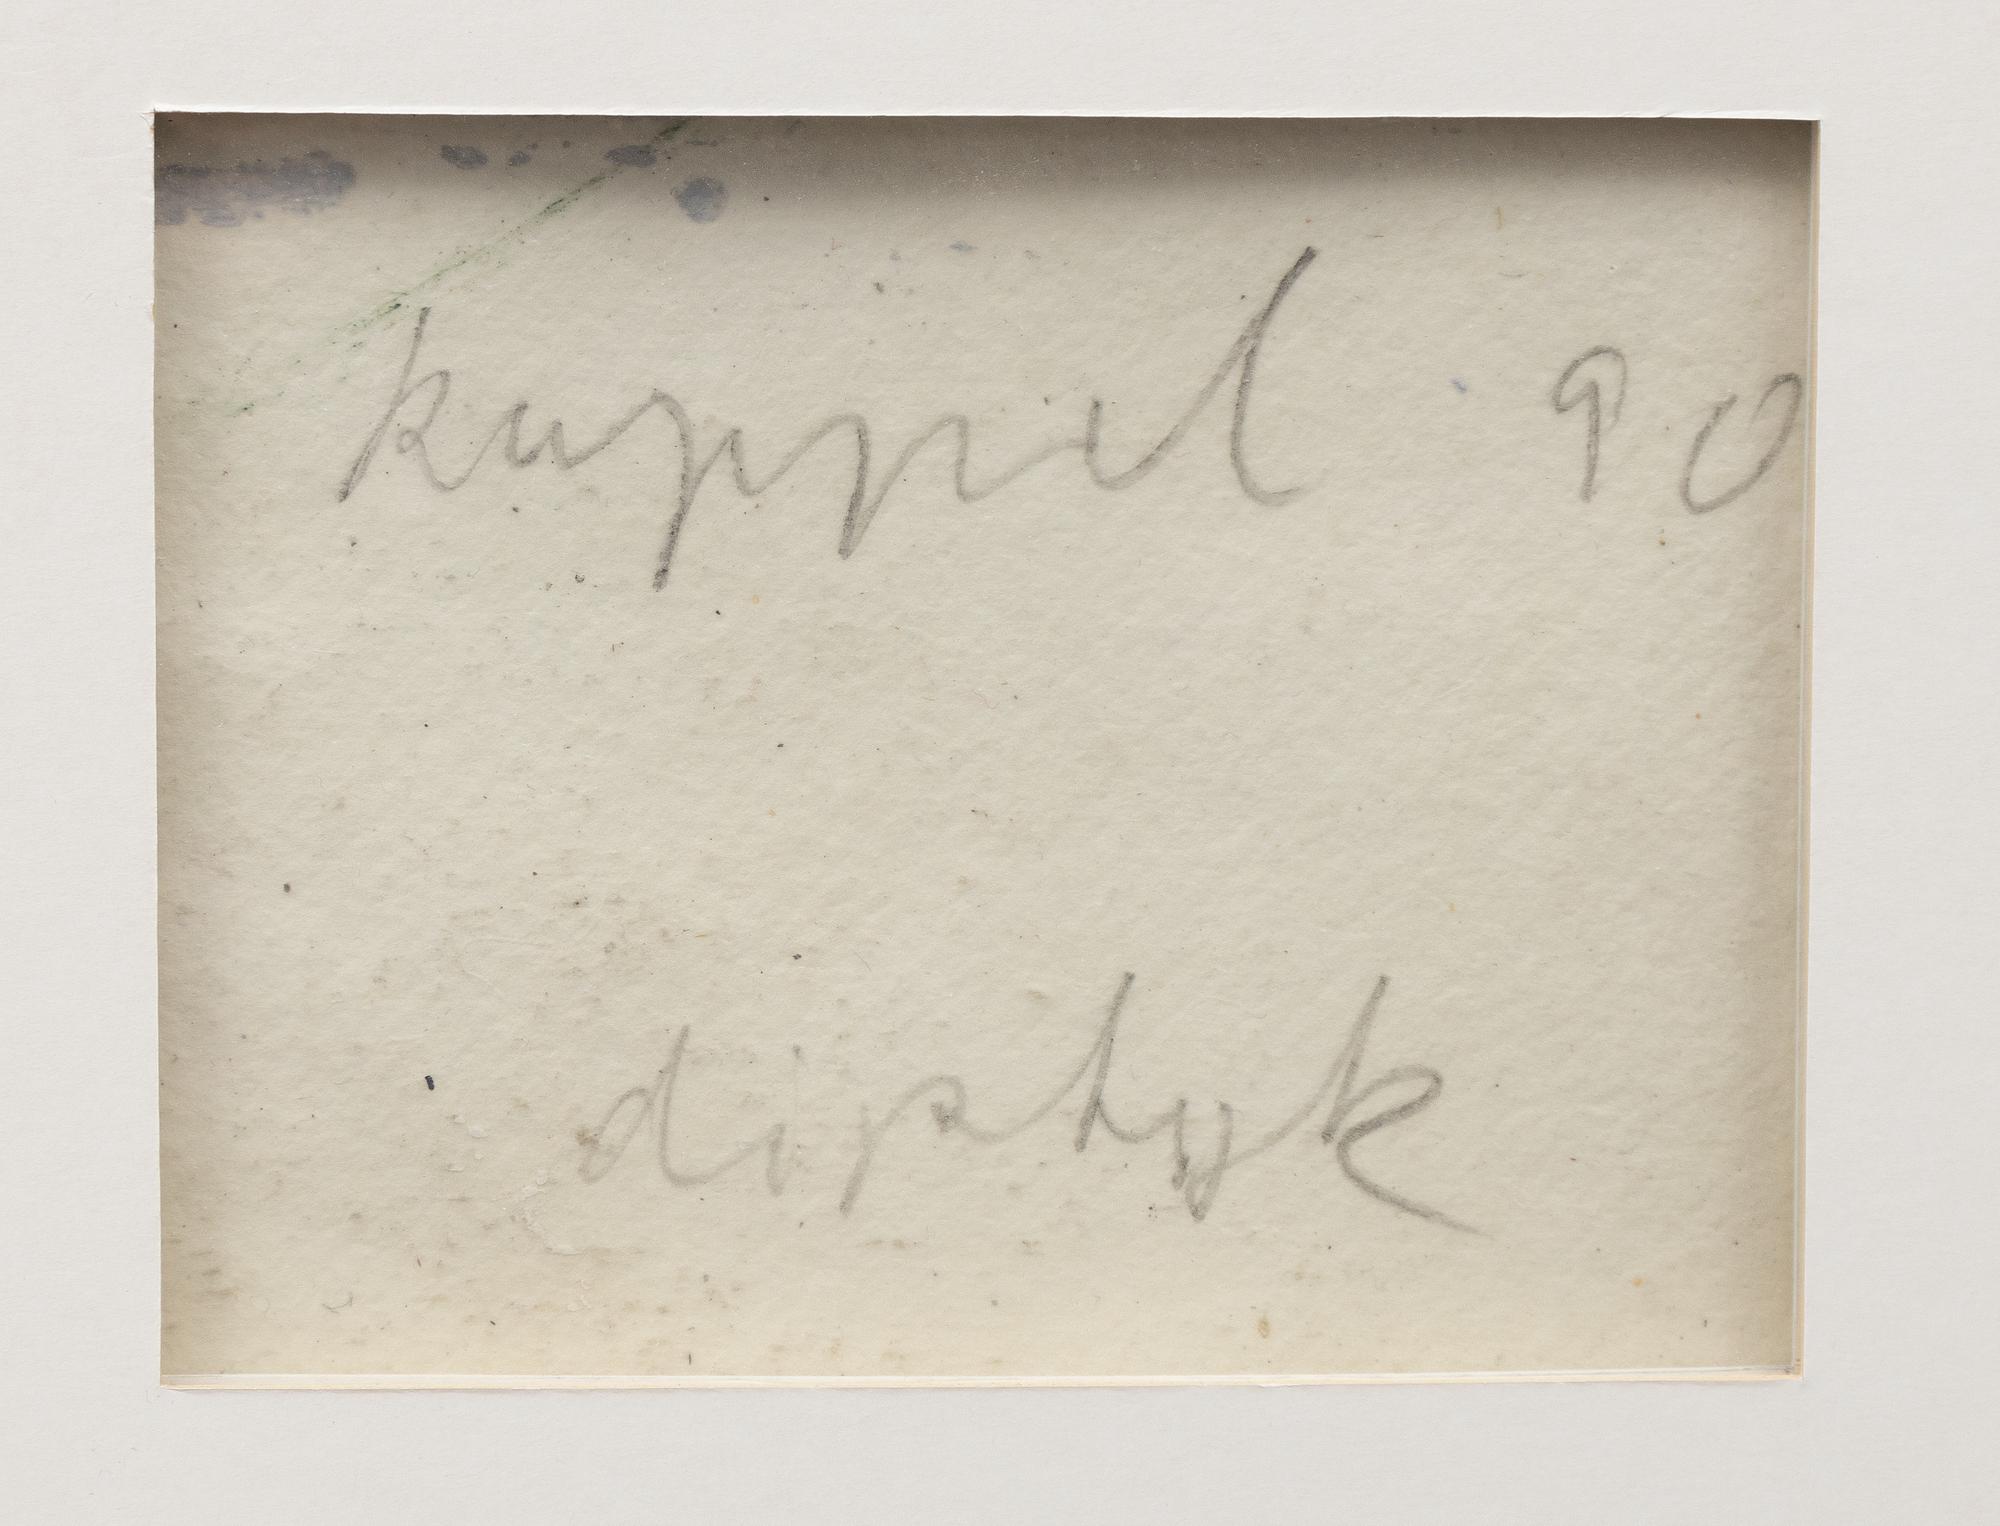 kuppel 90
diptyk